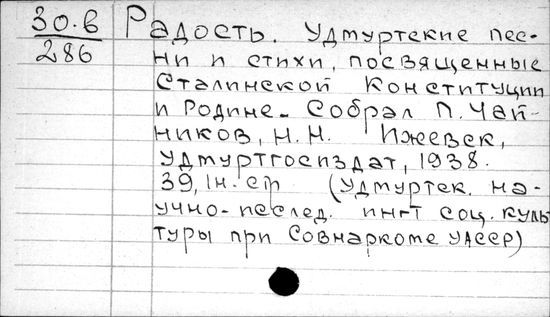 30.6
286
Радость. Удмуртские пес-
ни и стихи, посвященные
Сталинской Конституции
и Родине. Собрал П. Чай-
ников, Н.Н. Ижевск,
Удмуртгосиздат, 1938.
39, 1н. стр (Удмуртск. на-
учно-послед. инт-т соц. куль
туры при Совнаркоме УАССР)